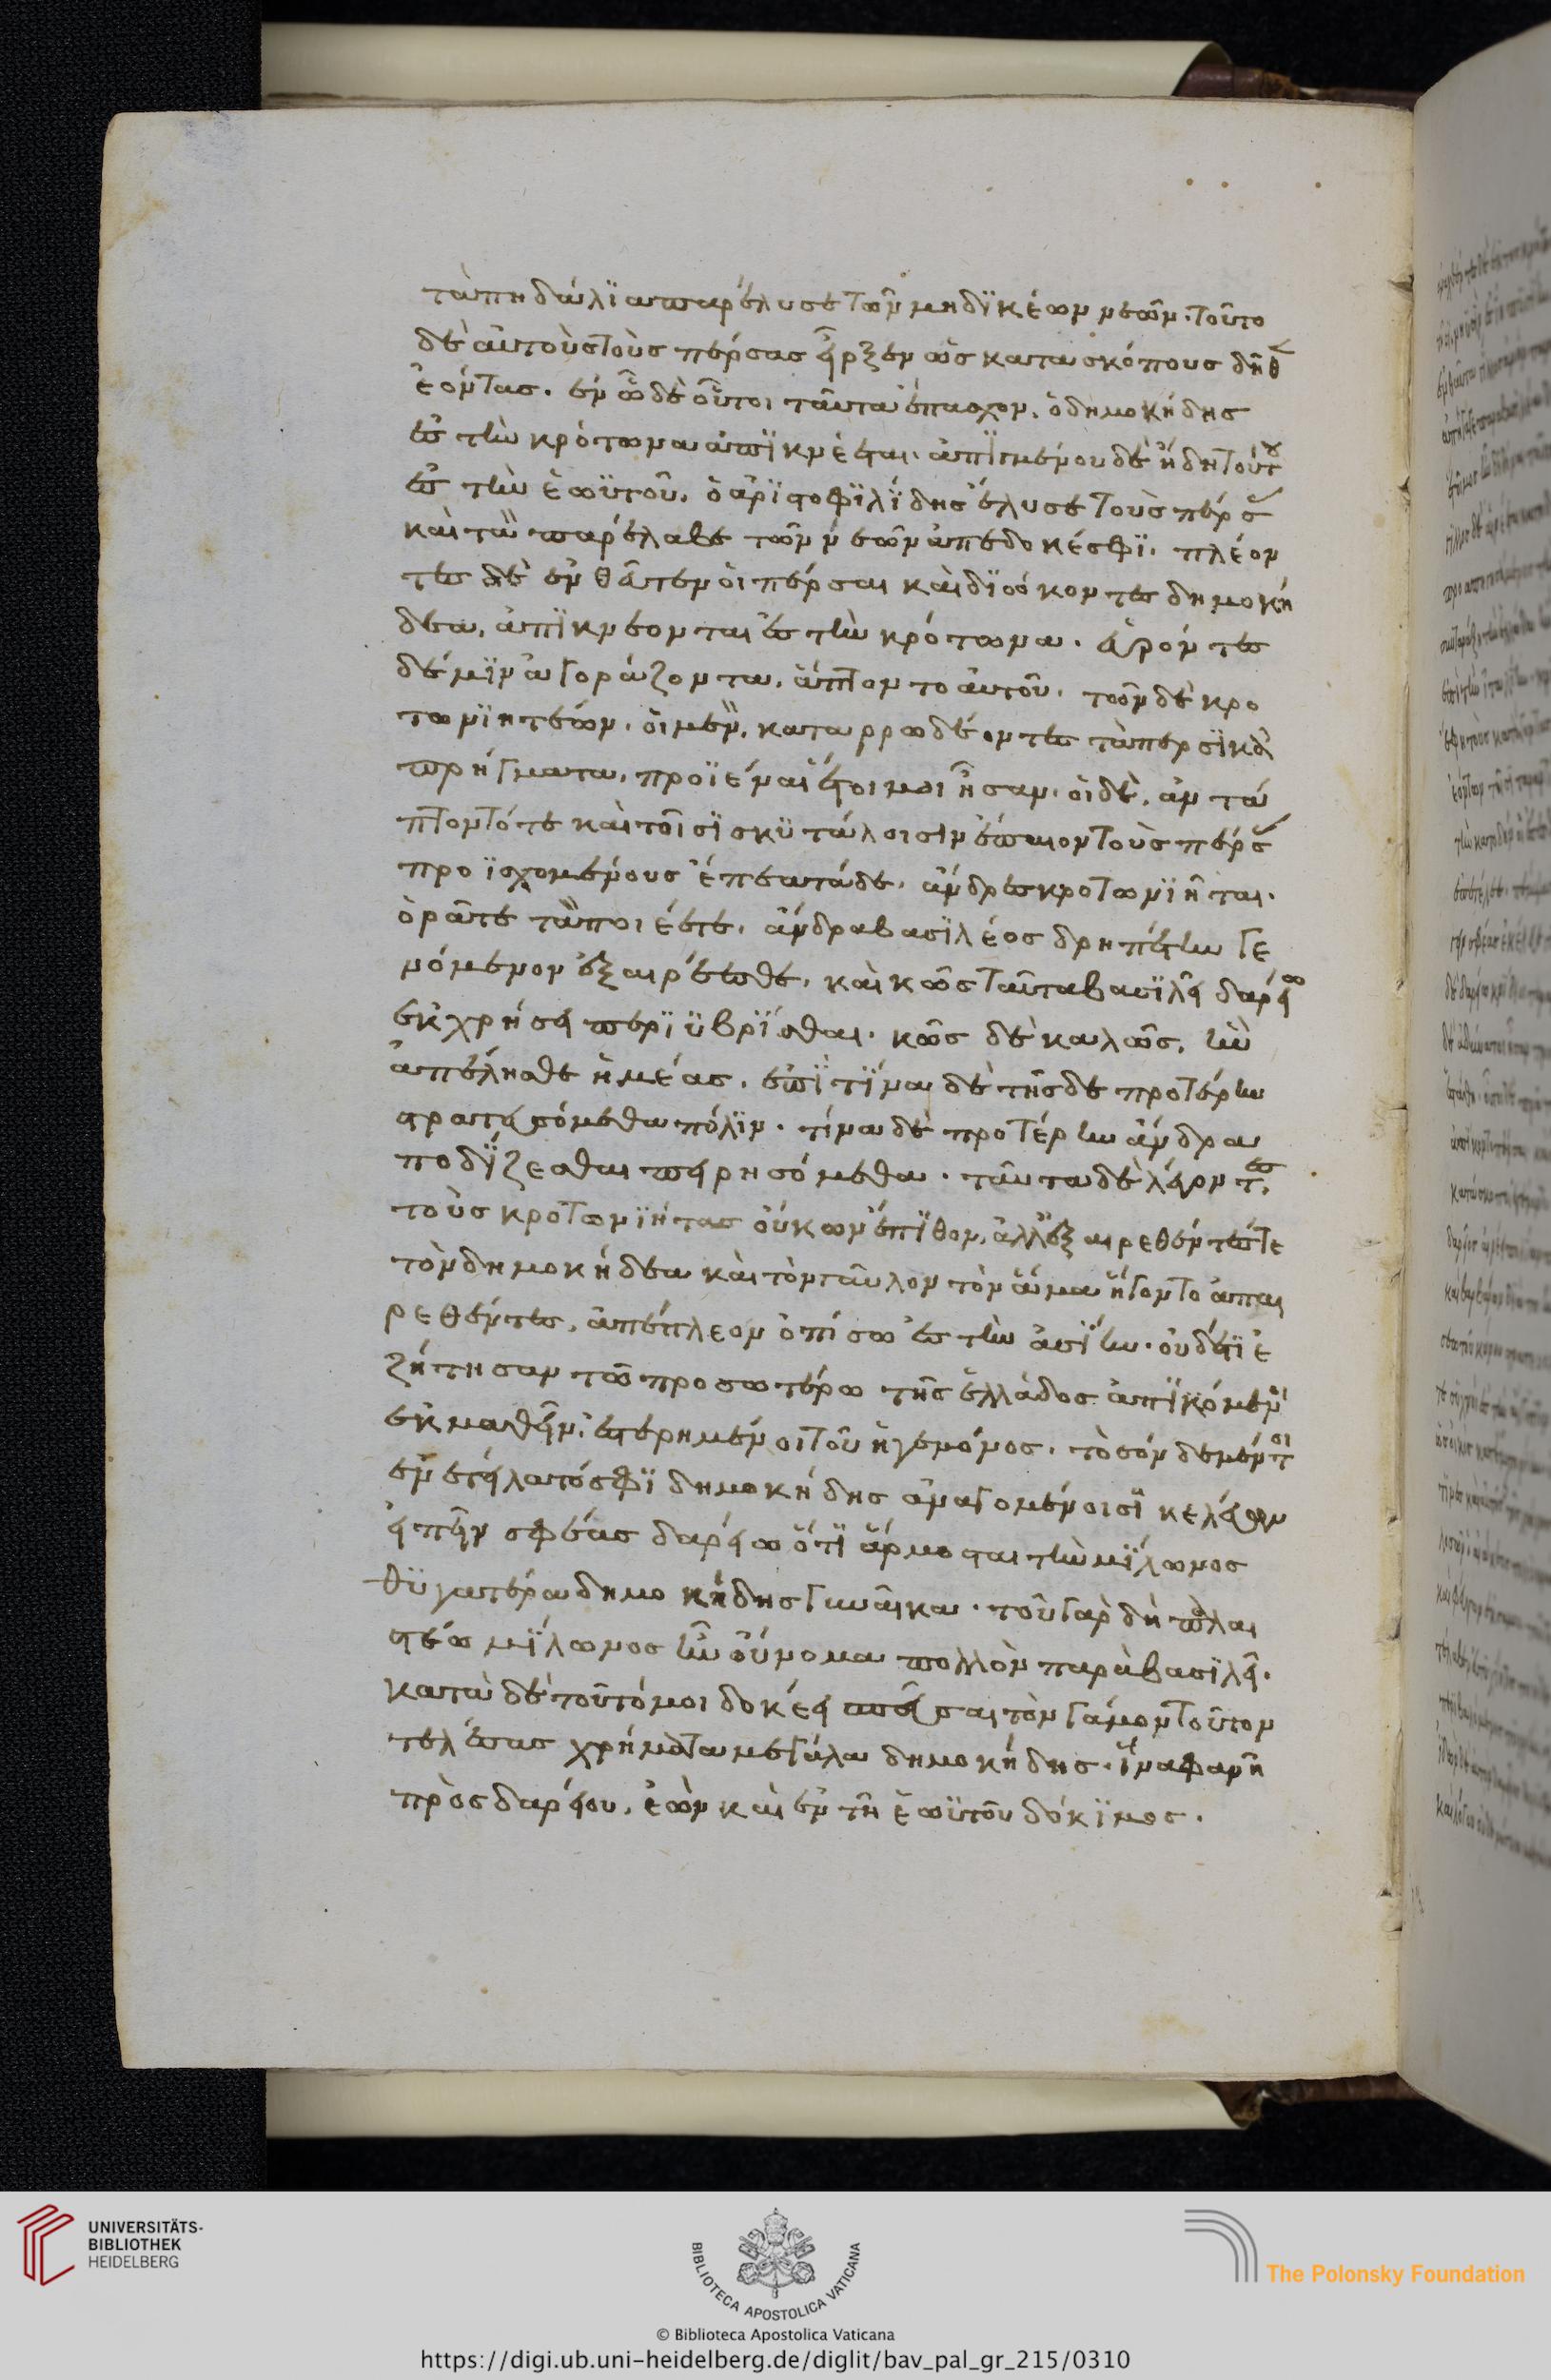 τὰ πηδάλϊα παρέλυσε τῶν μηδϊκέων νεῶν. τοῦτο
δὲ αὐτοὺς τοὺς πέρσας εἶρξεν ὡς κατασκόπους δῆθ
ἐόντας. ἐν ὧ δὲ οὗτοι ταῦτα ἔπασχον, ὁ δημοκήδης
ἐς τὴν κρότωνα ἀπϊκνέεται. ἀπϊγμένου δὲ ἤδη τούτ
ἐς τὴν ἑωϋτοῦ, ὁ ἀρϊστοφϊλΐδης ἔλυσε τοὺς πέρσ
καὶ τὰ παρέλαβε τῶν νεῶν ἀπέδοκέ σφϊ. πλέον
τες δὲ ἐνθεῦτεν οἱ πέρσαι καὶ δϊώκοντες δημοκή
δεα, ἀπϊκνέονται ἐς τὴν κρότωνα. εὑρόντες
δέ μϊν ἀγοράζοντα, ἅπτοντο αὐτοῦ. τῶν δὲ κρο
τωνϊητέων, οἱ μὲν, καταρρωδέοντες τὰ περσϊκὰ
πρήγματα, προϊέναι ἕτοιμοι ἦσαν. οἱ δὲ, ἀντά
πτοντό τε καὶ τοῖσϊ σκϋτάλοισιν ἔπαιον τοὺς πέρσ
προϊσχομένους ἔπεα τάδε. ἄνδρες κροτωνϊῆται.
ὁρᾶτε τὰ ποιέετε. ἄνδρα βασϊλέος δρηπέτην γε
νόμενον ἐξαιρέεσθε. καὶ κῶς ταῦτα βασϊλεῖ δαρείω
ἐκχρήσει περϊϋβρΐσθαι. κῶς δὲ καλῶς, ἢν
ἀπέλησθε ἡμέας. ἐπϊ τΐνα δὲ τῆσδε προτέρην
στρατευσόμεθα πόλϊν. τίνα δὲ προτέρην ἀνδρα
ποδΐζεσθαι πειρησόμεθα. ταῦτα δὲ λέγοντες,
τοὺς κροτωνϊήτας οὐκ ὦν ἔπϊθον, ἀλλ' ἐξαιρεθέντες τε
τὸν δημοκήδεα καὶ τὸν γαῦλον τὸν ἅμα ἤγοντο ἀπαι
ρεθέντες, ἀπέπλεον ὀπίσω ἐς τὴν ἀσΐην. οὐδέτϊ ἐ
ζήτησαν τὸ προσωτέρω τῆς ἑλλάδος ἀπϊκόμενοι
ἐκμαθεῖν, ἐστερημένοι τοῦ ἡγεμόνος. τὸσόν δε μέντοι
ἐνετείλατό σφϊ δημοκήδης ἀναγομένοισϊ κελεύων
εἰπεῖν σφέας δαρείω ὅτϊ ἅρμοσται τὴν μΐλωνος
θϋγατέρα δημοκήδης γυναῖκα. τοῦ γὰρ δὴ παλαι
στέω μΐλωνος ἦν οὔνομα πολλὸν παρὰ βασϊλεῖ.
κατὰ δὲ τοῦτό μοι δοκέει σπεῦσαι τὸν γάμον τοῦτον
τελέσας χρήματα μεγάλα δημοκήδης. ἵνα φανῆ
πρὸς δαρείου, ἐὼν καὶ ἐν τῆ ἑωϋτοῦ δόκϊμος.
UNIVERSITÄTS-
BIBLIOTHEK
HEIDELBERG
BIBLIOTECA APOSTOLICA VATICANA
The Polonsky Foundation
© Biblioteca Apostolica Vaticana
https://digi.ub.uni-heidelberg.de/diglit/bav_pal_gr_215/0310